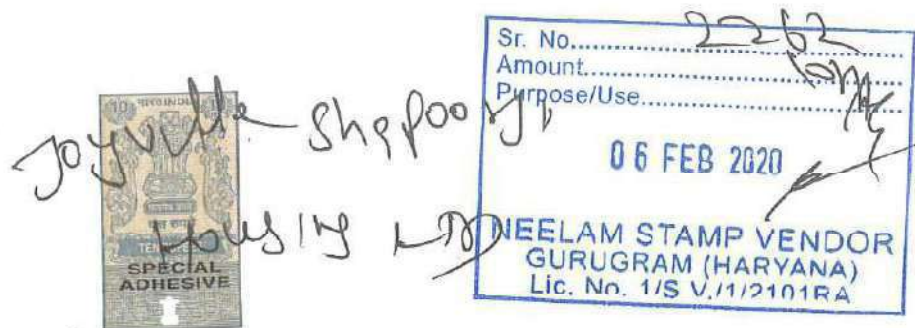 Joyville Shapoorji
Housing LTD
10 10
TEN
SPECIAL
ADHESIVE
Sr. No. 2262
Amount
Purpose/Use
06 FEB 2020
NEELAM STAMP VENDOR
GURUGRAM (HARYANA)
Lic. No. 1/S V./1/2101RA